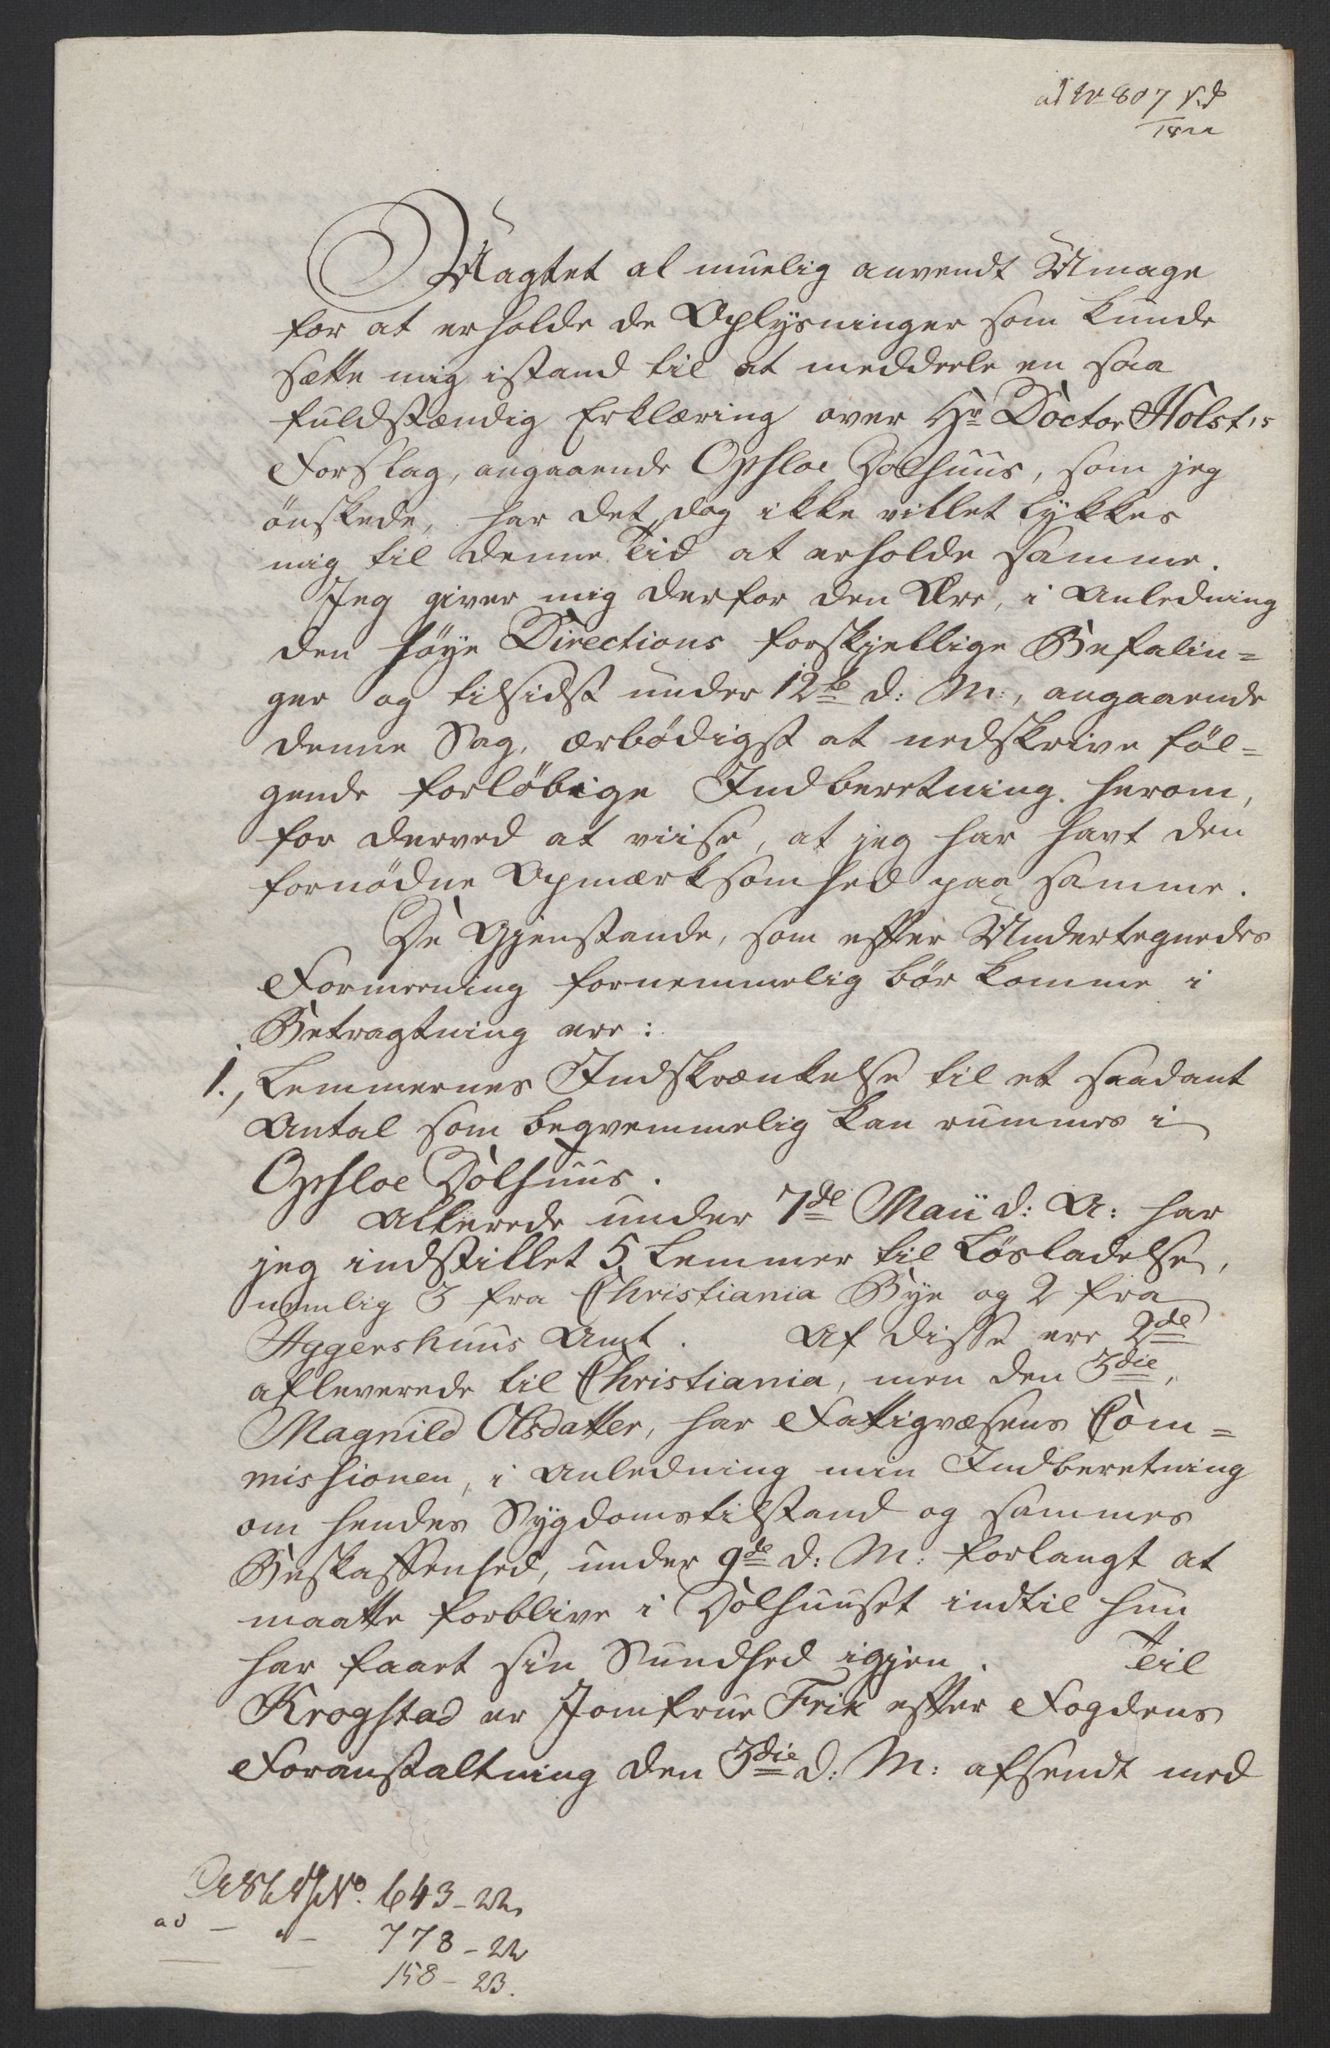 ad No 807 F.D.
1822
Uagtet al muelig anvendt Umage
for at erholde de Oplysninger som kunde
sætte mig istand til at meddeele en saa
fuldstændig Erklæring over Hr Doctor Holst's
Forslag, angaaende Opsloe Dolhuus, som jeg
ønskede, har det dog ikke villet lykkes
mig til denne Tid at erholde samme.
Jeg giver mig derfor den Ære, i Anledning
den høye Directions forskjellige Befalin=
ger og tilsidst under 12te d: M:, angaaende
denne Sag, ærbødigst at nedskrive føl=
gende forløbige Indberetning herom,
for derved at viise, at jeg har havt den
fornødne Opmærksomhed paa samme.
De Gjenstande, som efter Undertegnedes
Formeening fornemmelig bør komme i
Betragtning ere:
1., Lemmernes Indskrænkelse til et saadant
Antal som beqvemmelig kan rummes i
Opsloe Dolhuus.
Allerede under 7de Maii d: A: har
jeg indstillet 5 Lemmer til Løsladelse,
nemlig 3 fra Christiania Bye og 2 fra
Aggershuus Amt. Af disse ere 2de
afleverede til Christiania, men den 3die,
Magnild Olsdatter, har Fattigvæsens Com=
missionen, i Anledning min Indberetning
om hendes Sygdomstilstand og sammes
Beskaffenhed, under 9de d: M: forlangt at
maatte forblive i Dolhuuset indtil hun
har faaet sin Sundhed igjen. Til
Krogstad er Jomfrue Frik efter Fogdens
Foranstaltning den 3die d: M: afsendt med
No. 643 - 22.
ad — " — 778 - 22
— — 158 - 23.